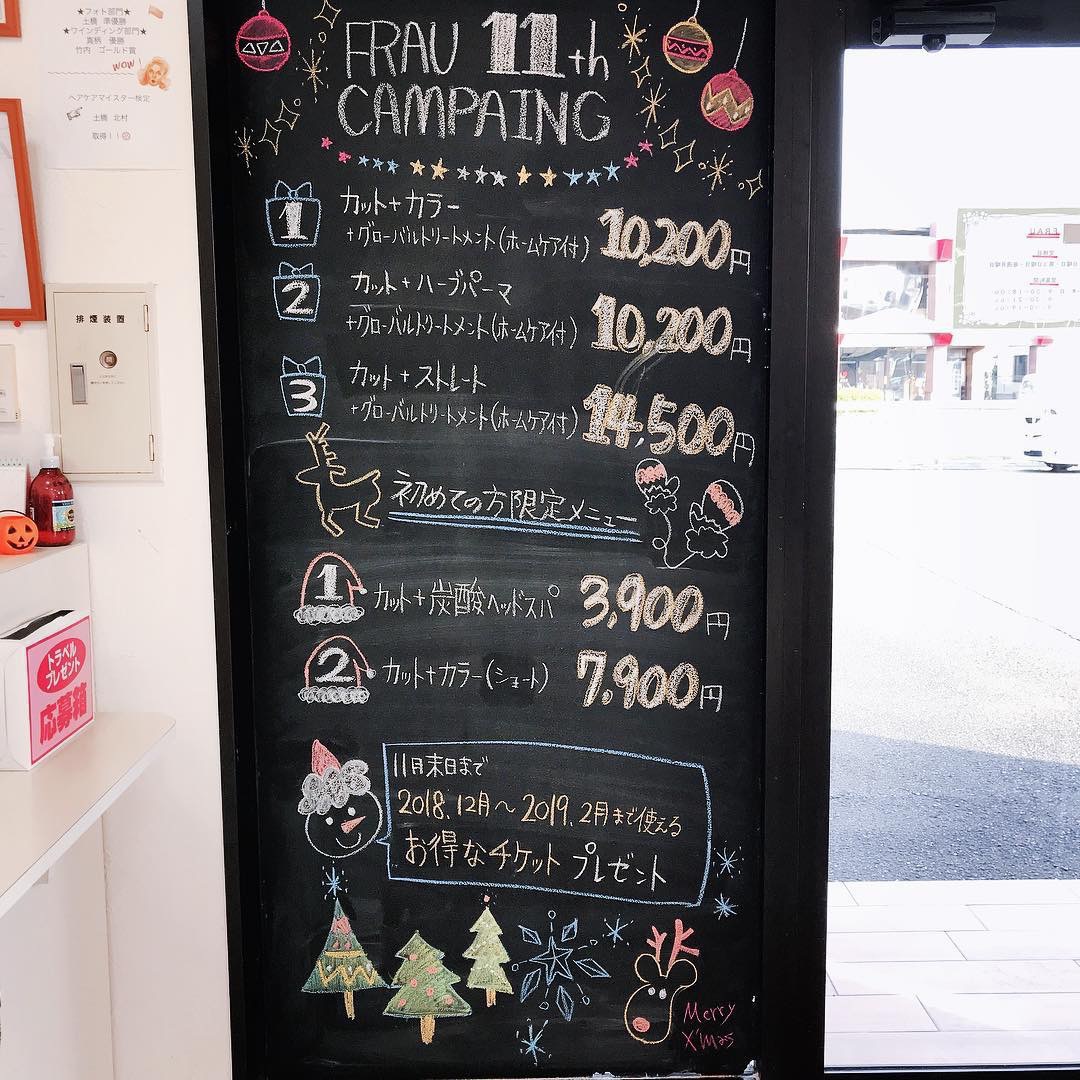 ★フォト部門★
土橋 準優勝
★ワインディング部門★
竹内 ゴールド賞
WOW!
ヘアケアマイスター検定
土橋 北村
取得!!
排煙装置
トラベル
プレゼント
応募箱
FRAU 11th
CAMPAING
1 カット+カラー
+グローバルトリートメント(ホームケア付) 10,200円
2 カット+ハーブパーマ
+グローバルトリートメント(ホームケア付) 10,200円
3 カット+ストレート
+グローバルトリートメント(ホームケア付) 14,500円
初めての方限定メニュー
1 カット+炭酸ヘッドスパ 3,900円
2 カット+カラー(ショート) 7,900円
11月末日まで
2018.12月〜2019.2月まで使える
お得なチケット プレゼント
Merry
X'mas
FRAU